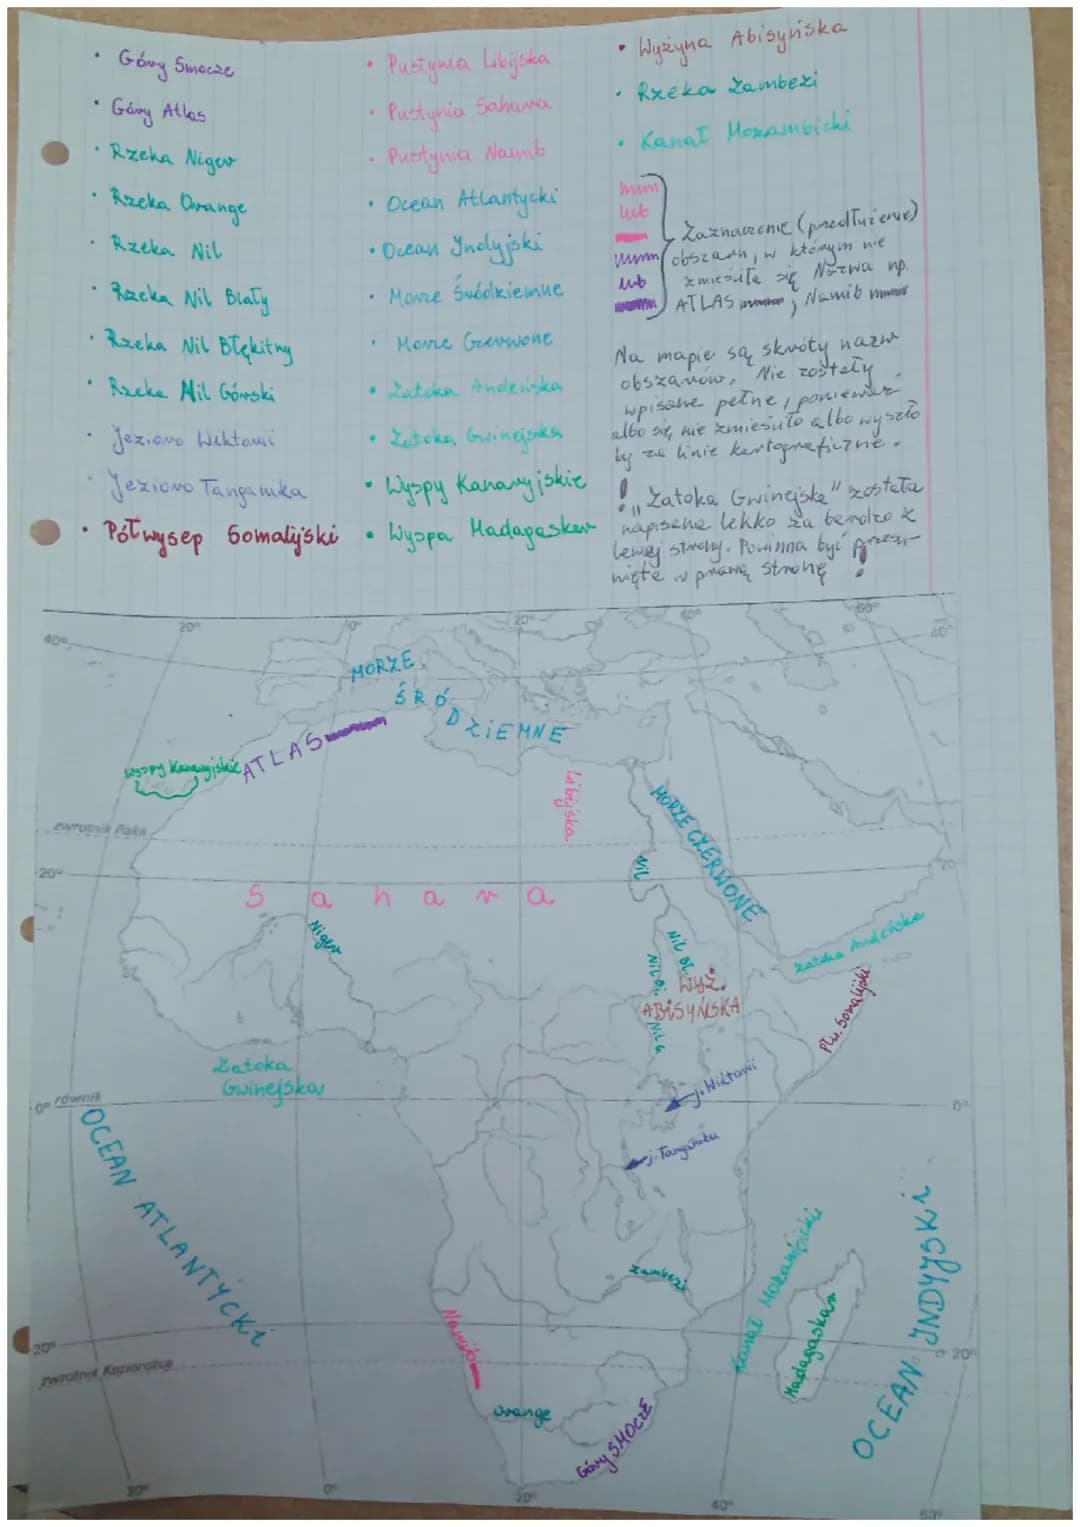 • Góry Smocze
• Góry Atlas
• Rzeka Niger
• Rzeka Orange
• Rzeka Nil
• Rzeka Nil Biały
• Rzeka Nil Błękitny
• Rzeka Nil Górski
• Jezioro Wiktorii
• Jezioro Tanganika
• Półwysep Somalijski
• Pustynia Libijska
• Pustynia Sahara
• Pustynia Namib
• Ocean Atlantycki
• Ocean Indyjski
• Morze Śródziemne
• Morze Czerwone
• Zatoka Andeńska
• Zatoka Gwinejska
• Wyspy Kanaryjskie
• Wyspa Madagaskar
• Wyżyna Abisyńska
• Rzeka Zambezi
• Kanał Mozambicki
lub
lub
Zaznaczenie (przedłużenie)
obszaru, w którym nie
zmieściła się Nazwa np.
ATLAS , Namib
Na mapie są skróty nazw
obszarów. Nie zostały
wpisane pełne, ponieważ
albo się nie zmieściło albo wyszło
by za linie kartograficzne.
! „Zatoka Gwinejska" została
napisana lekko za bardzo z
lewej strony. Powinna być przesu-
nięta w prawą stronę !
20° 0° 20° 40° 60°
40° 40°
MORZE
ŚRÓDZIEMNE
Wyspy Kanaryjskie
ATLAS
Libijska
MORZE CZERWONE
zwrotnik Raka
20° 20°
Nil
Sahara
Niger
Nil Bł.
Nil Bi.
Nil G.
WYŻ.
ABISYŃSKA
Zatoka Andeńska
Płw. Somalijski
Zatoka
Gwinejska
j. Wiktorii
0° równik 0°
j. Tanganika
OCEAN ATLANTYCKI
OCEAN INDYJSKI
Zambezi
Kanał Mozambicki
Madagaskar
Namib
20° 20°
zwrotnik Koziorożca
Orange
Góry SMOCZE
20° 0° 20° 40° 60°